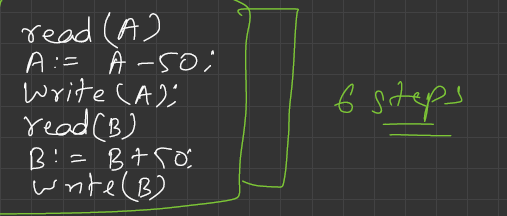 read(A)
A:= A-50;
Write(A);
read(B)
B:= B+50;
write(B)
6 steps